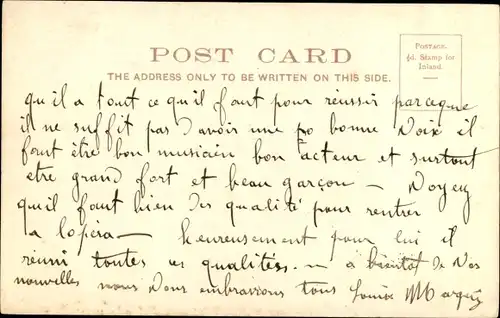 POST CARD
THE ADDRESS ONLY TO BE WRITTEN ON THIS SIDE.
POSTAGE.
½d. Stamp for
Inland.
qu'il a tout ce qu'il faut pour réussir parceque
il ne suffit pas d'avoir une bonne Voix il
faut être bon musicien bon acteur et surtout
etre grand fort et beau garçon — Voyez
qu'il faut bien des qualité pour rentrer
a lopéra — heureusement pour lui il
réuni toutes ces qualités. — a bientot de Vos
nouvelles nous Vous embrassons tous Louise